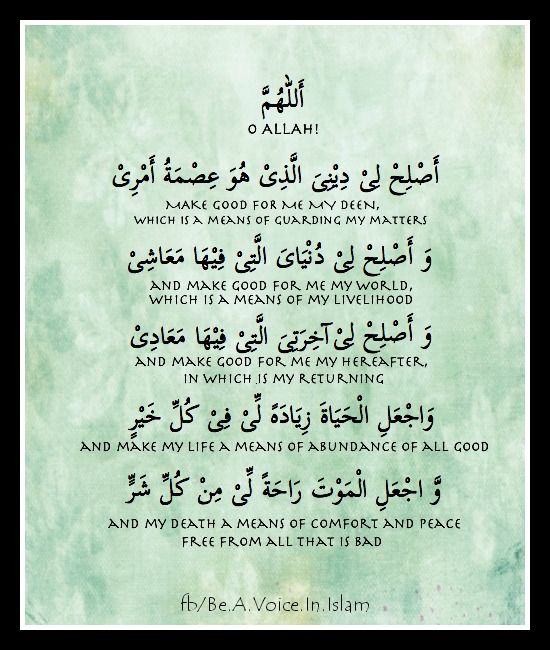 أَللّٰهُمَّ
O ALLAH!
أَصْلِحْ لِىْ دِيْنِىَ الَّذِىْ هُوَ عِصْمَةُ أَمْرِىْ
MAKE GOOD FOR ME MY DEEN,
WHICH IS A MEANS OF GUARDING MY MATTERS
وَ أَصْلِحْ لِىْ دُنْيَاىَ الَّتِىْ فِيْهَا مَعَاشِىْ
AND MAKE GOOD FOR ME MY WORLD,
WHICH IS A MEANS OF MY LIVELIHOOD
وَ أَصْلِحْ لِىْ آخِرَتِىَ الَّتِىْ فِيْهَا مَعَادِىْ
AND MAKE GOOD FOR ME MY HEREAFTER,
IN WHICH IS MY RETURNING
وَاجْعَلِ الْحَيَاةَ زِيَادَةً لِّىْ فِىْ كُلِّ خَيْرٍ
AND MAKE MY LIFE A MEANS OF ABUNDANCE OF ALL GOOD
وَّ اجْعَلِ الْمَوْتَ رَاحَةً لِّىْ مِنْ كُلِّ شَرٍّ
AND MY DEATH A MEANS OF COMFORT AND PEACE
FREE FROM ALL THAT IS BAD
fb/Be.A.Voice.In.Islam